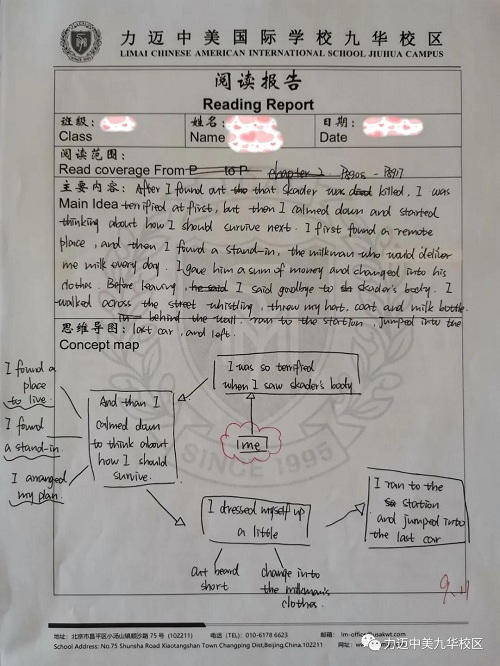 力迈中美国际学校九华校区
LIMAI CHINESE AMERICAN INTERNATIONAL SCHOOL JIUHUA CAMPUS
阅读报告
Reading Report
班级: 姓名: 日期:
Class Name Date
阅读范围:
Read coverage From P to P chapter 2
主要内容: After I found out tho that skader was dead killed, I was
Main Idea terrified at first, but then I calmed down and started
thinking about how I should survive next. I first found a remote
place, and then I found a stand-in, the milkman who would deliver
me milk every day. I gave him a sum of money and changed into his
clothes. Before leaving, he said I said goodbye to sk skader's body. I
walked across the street whistling, threw my hat, coat and milk bottle
in behind the wall. ran to the station, jumped into the
思维导图: last car, and left.
Concept map
I was so terrified
when I saw skader's body
I found a
place
to live.
I found
a stand-in.
I arranged
my plan.
And than I
calmed down
to think about
how I should
survive.
I me
SINCE 1995
I dressed myself up
a little
cut beard
short
change into
the milkman's
clothes.
I ran to the
sa station
and jumped into
the last car
9.11
地址: 北京市昌平区小汤山镇顺沙路 75 号 (102211) 电话 (TEL): 010-6178 6623 邮箱: lm-office@usakwt.com
School Address: No.75 Shunsha Road Xiaotangshan Town Changping Dist,Beijing,China.102211
力迈中美九华校区